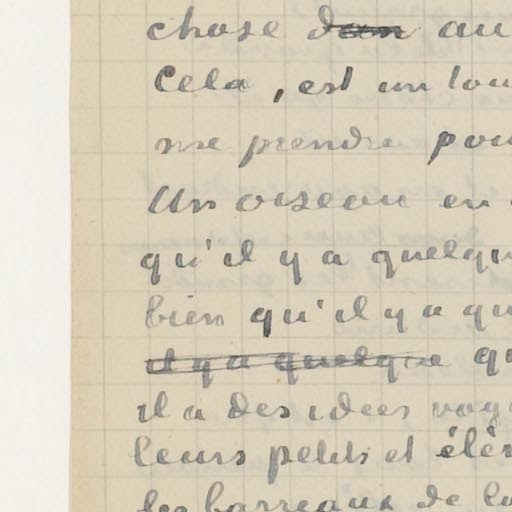 chose dan au
Cela, est un tou
me prendre pou
Un oiseau en
qu'il y a quelqu
bien qu'il y a qu
il y a quelque qu
il a des idees vag
leurs petits et élèv
les barreaux de la